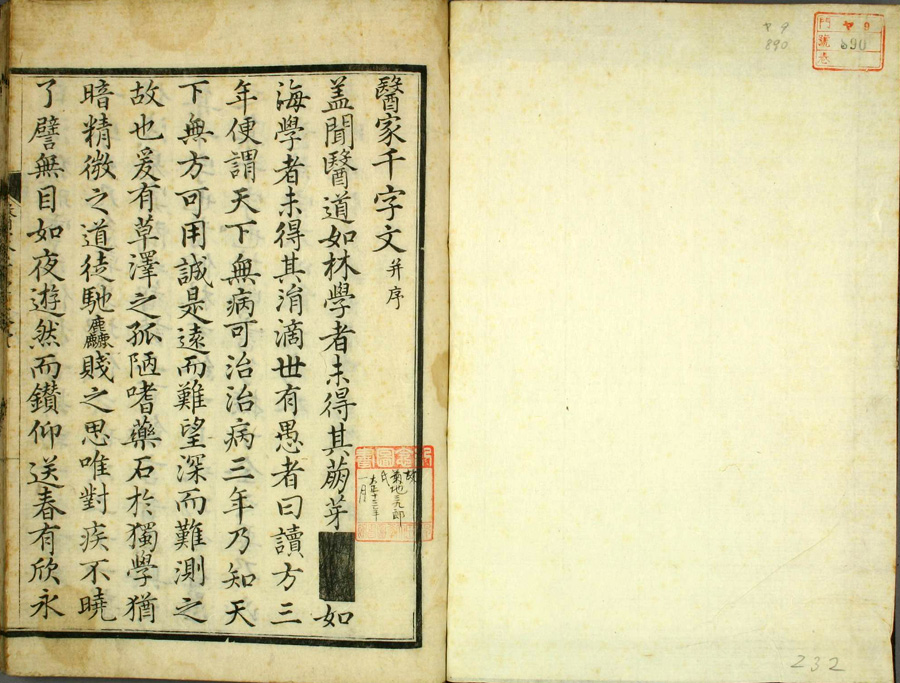 ヤ9
890
門 ヤ9
號 890
卷
醫家千字文 并序
盖聞醫道如林學者未得其萠芽 如
海學者未得其涓滴世有愚者曰讀方三
年便謂天下無病可治治病三年乃知天
下無方可用誠是遠而難望深而難測之
故也爰有草澤之孤陋嗜藥石於獨學猶
暗精微之道徒馳麤賎之思唯對疾不曉
了譬無目如夜遊然而鑚仰送春有欣永
菊地三九郎
氏
大正十三年
一月
232